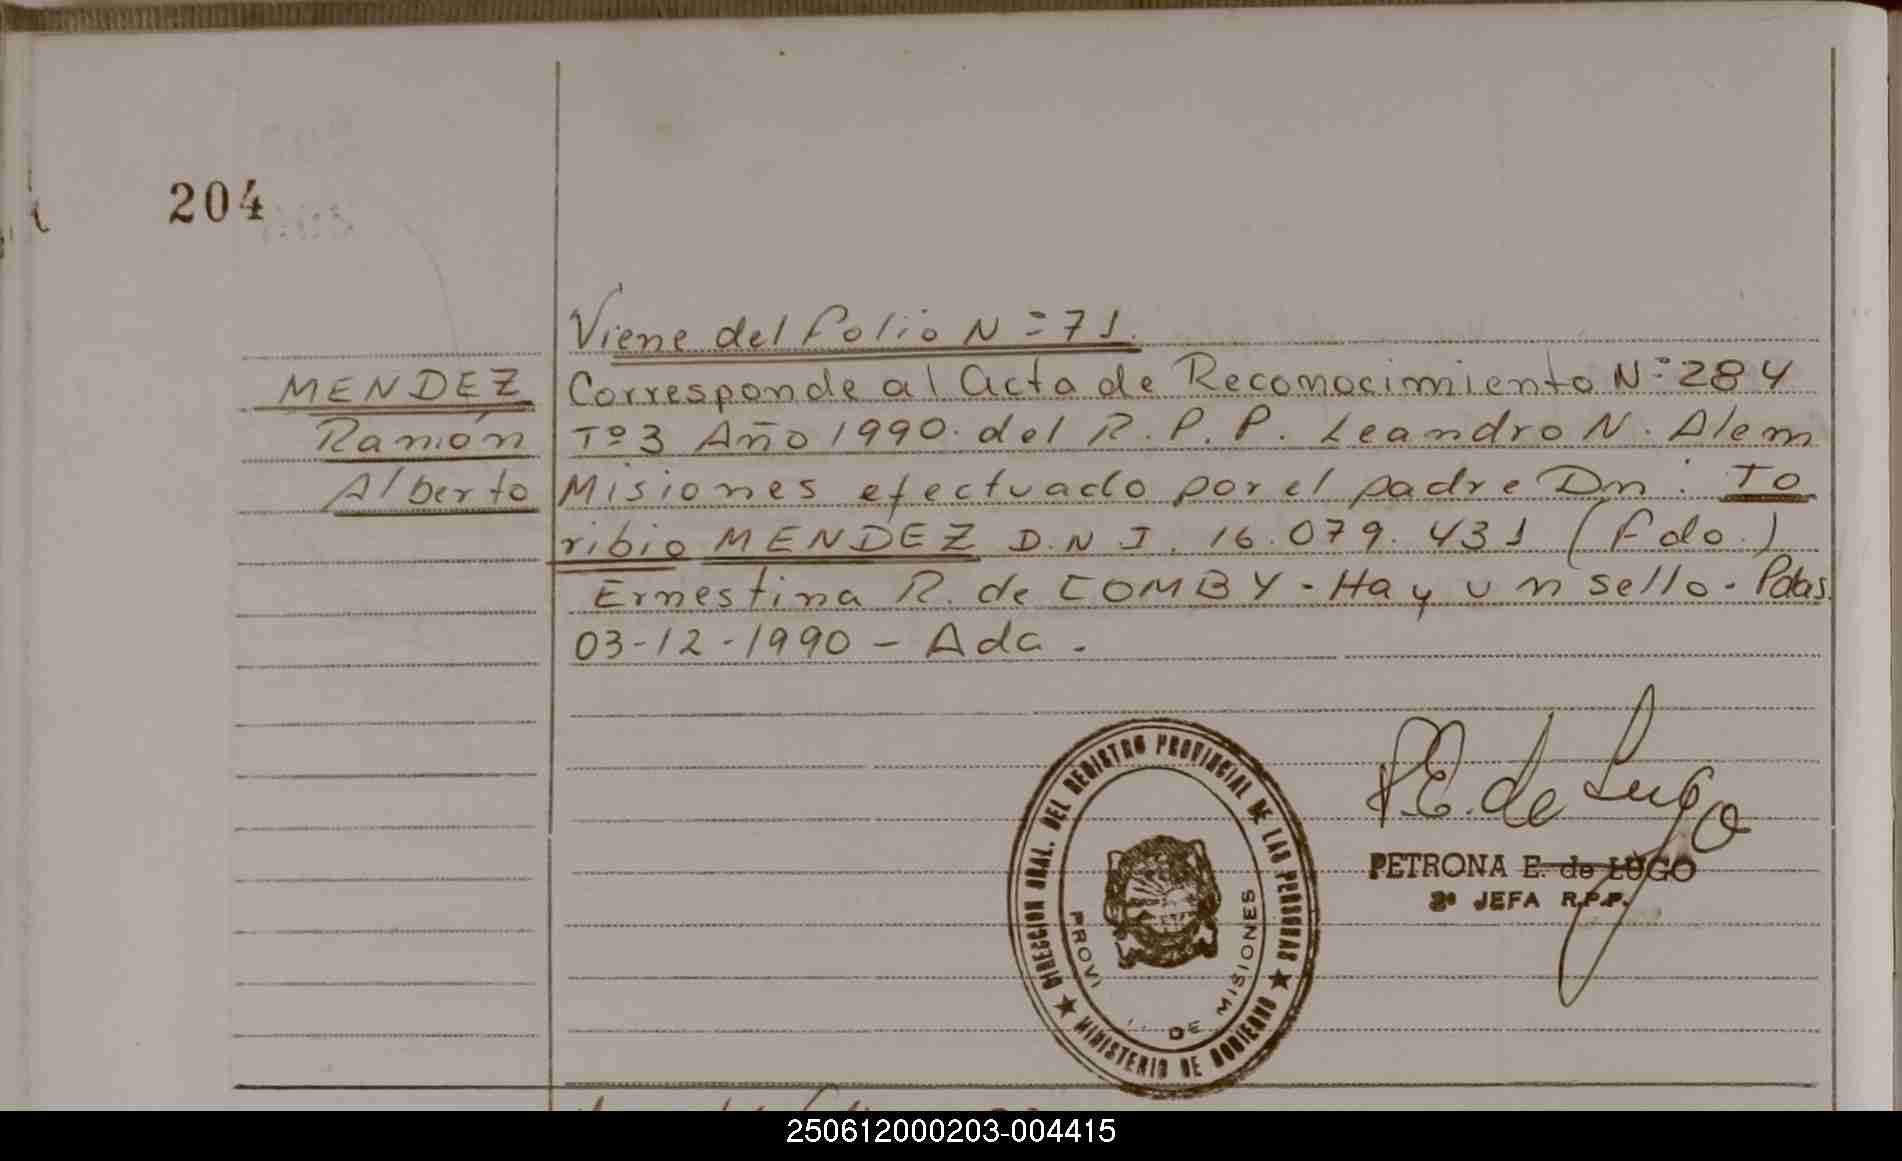 204
Viene del folio Nº 71.
MENDEZ
Ramón
Alberto
Corresponde al Acta de Reconocimiento Nº 284
Tº 3 Año 1990. del R. P. P. Leandro N. Alem
Misiones efectuado por el padre Dn: To
ribio MENDEZ D.N.I. 16.079.431 (fdo.)
Ernestina R. de COMBY - Hay un sello - Pdas.
03-12-1990 - Ada.
P.E. de Lugo
PETRONA E. de LUGO
2º JEFA R.P.P.
DIRECCION GRAL. DEL REGISTRO PROVINCIAL DE LAS PERSONAS
MINISTERIO DE GOBIERNO
PROVI DE MISIONES
250612000203-004415